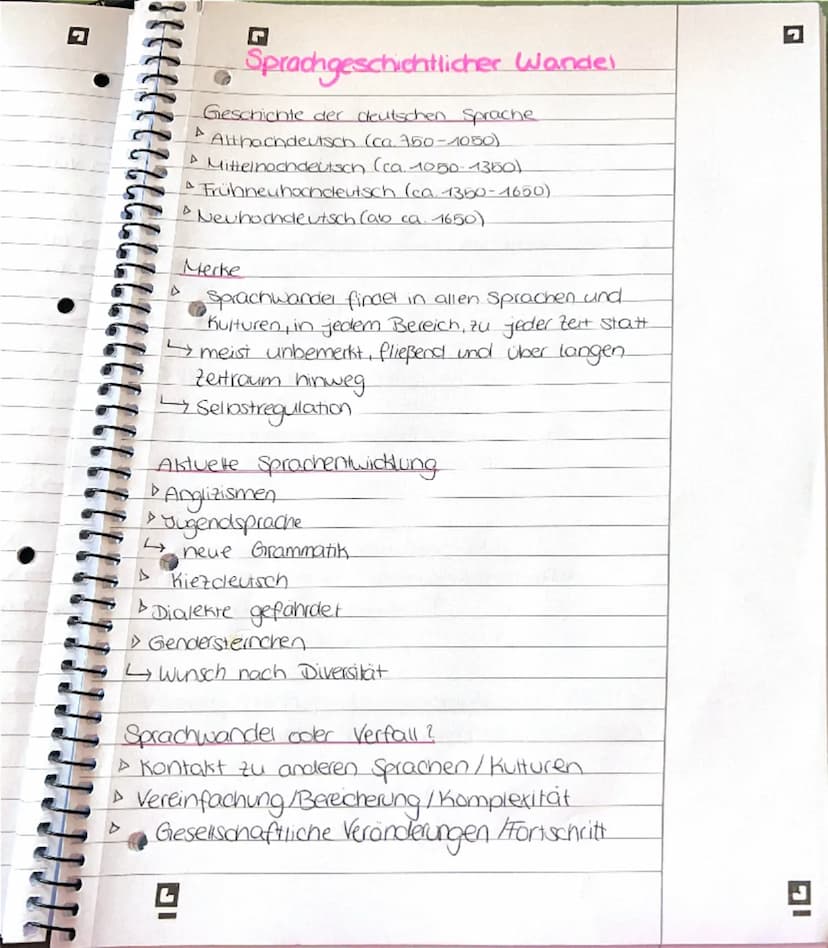 Sprachgeschichtlicher Wandel
Geschichte der deutschen Sprache
▹ Althochdeutsch (ca. 750-1050)
▹ Mittelhochdeutsch (ca. 1050-1350)
▹ Frühneuhochdeutsch (ca. 1350-1650)
▹ Neuhochdeutsch (ab ca. 1650)
Merke
▹ Sprachwandel findet in allen Sprachen und
Kulturen, in jedem Bereich, zu jeder Zeit statt
↳ meist unbemerkt, fließend und über langen
Zeitraum hinweg
↳ Selbstregulation
Aktuelle Sprachentwicklung
▹ Anglizismen
▹ Jugendsprache
↳ neue Grammatik
▹ Kiezdeutsch
▹ Dialekte gefährdet
▹ Gendersternchen
↳ Wunsch nach Diversität
Sprachwandel oder Verfall?
▹ Kontakt zu anderen Sprachen/Kulturen
▹ Vereinfachung/Bereicherung/Komplexität
▹ Gesellschaftliche Veränderungen/Fortschritt